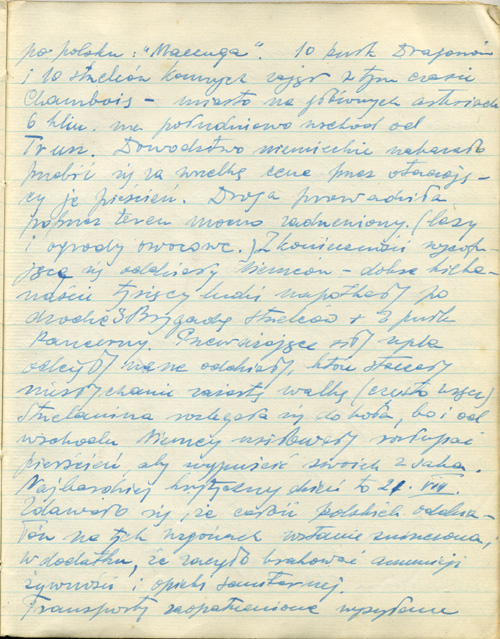 po polsku: "Maczuga". 10 pułk Dragonów
i 10 strzelców konnych zajął w tym czasie
Chambois - miasto na głównych
6 klm. na południowo wschód od
Trun. Dowództwo niemieckie nakazało
przebić się za wszelką cenę przez otaczają-
cy je pierścień. Droga prowadziła
poprzez teren mocno zadrzewiony. (lasy
i ogrody owocowe.) Z konieczności wycofu-
jące się oddziały Niemców - dobre kilka-
naście tysięcy ludzi napotkały po
drodze 3 Brygadę Strzelców + 2 pułk
Pancerny. Przeważające siły npla
odcięły nasze oddziały, które staczały
niesłychanie zażartą walkę (często wręcz)
Strzelanina rozlegała się dookoła, bo i od
wschodu Niemcy usiłowali rozłupać
pierścień, aby wypuścić swoich z worka.
Najbardziej krytyczny dzień to 21. VIII.
Zdawało się, że całość polskich oddzia-
łów na tych wzgórzach zostanie zniszczona,
w dodatku, że zaczęło brakować amunicji
żywności i opieki sanitarnej.
Transporty zaopatrzeniowe wysyłane